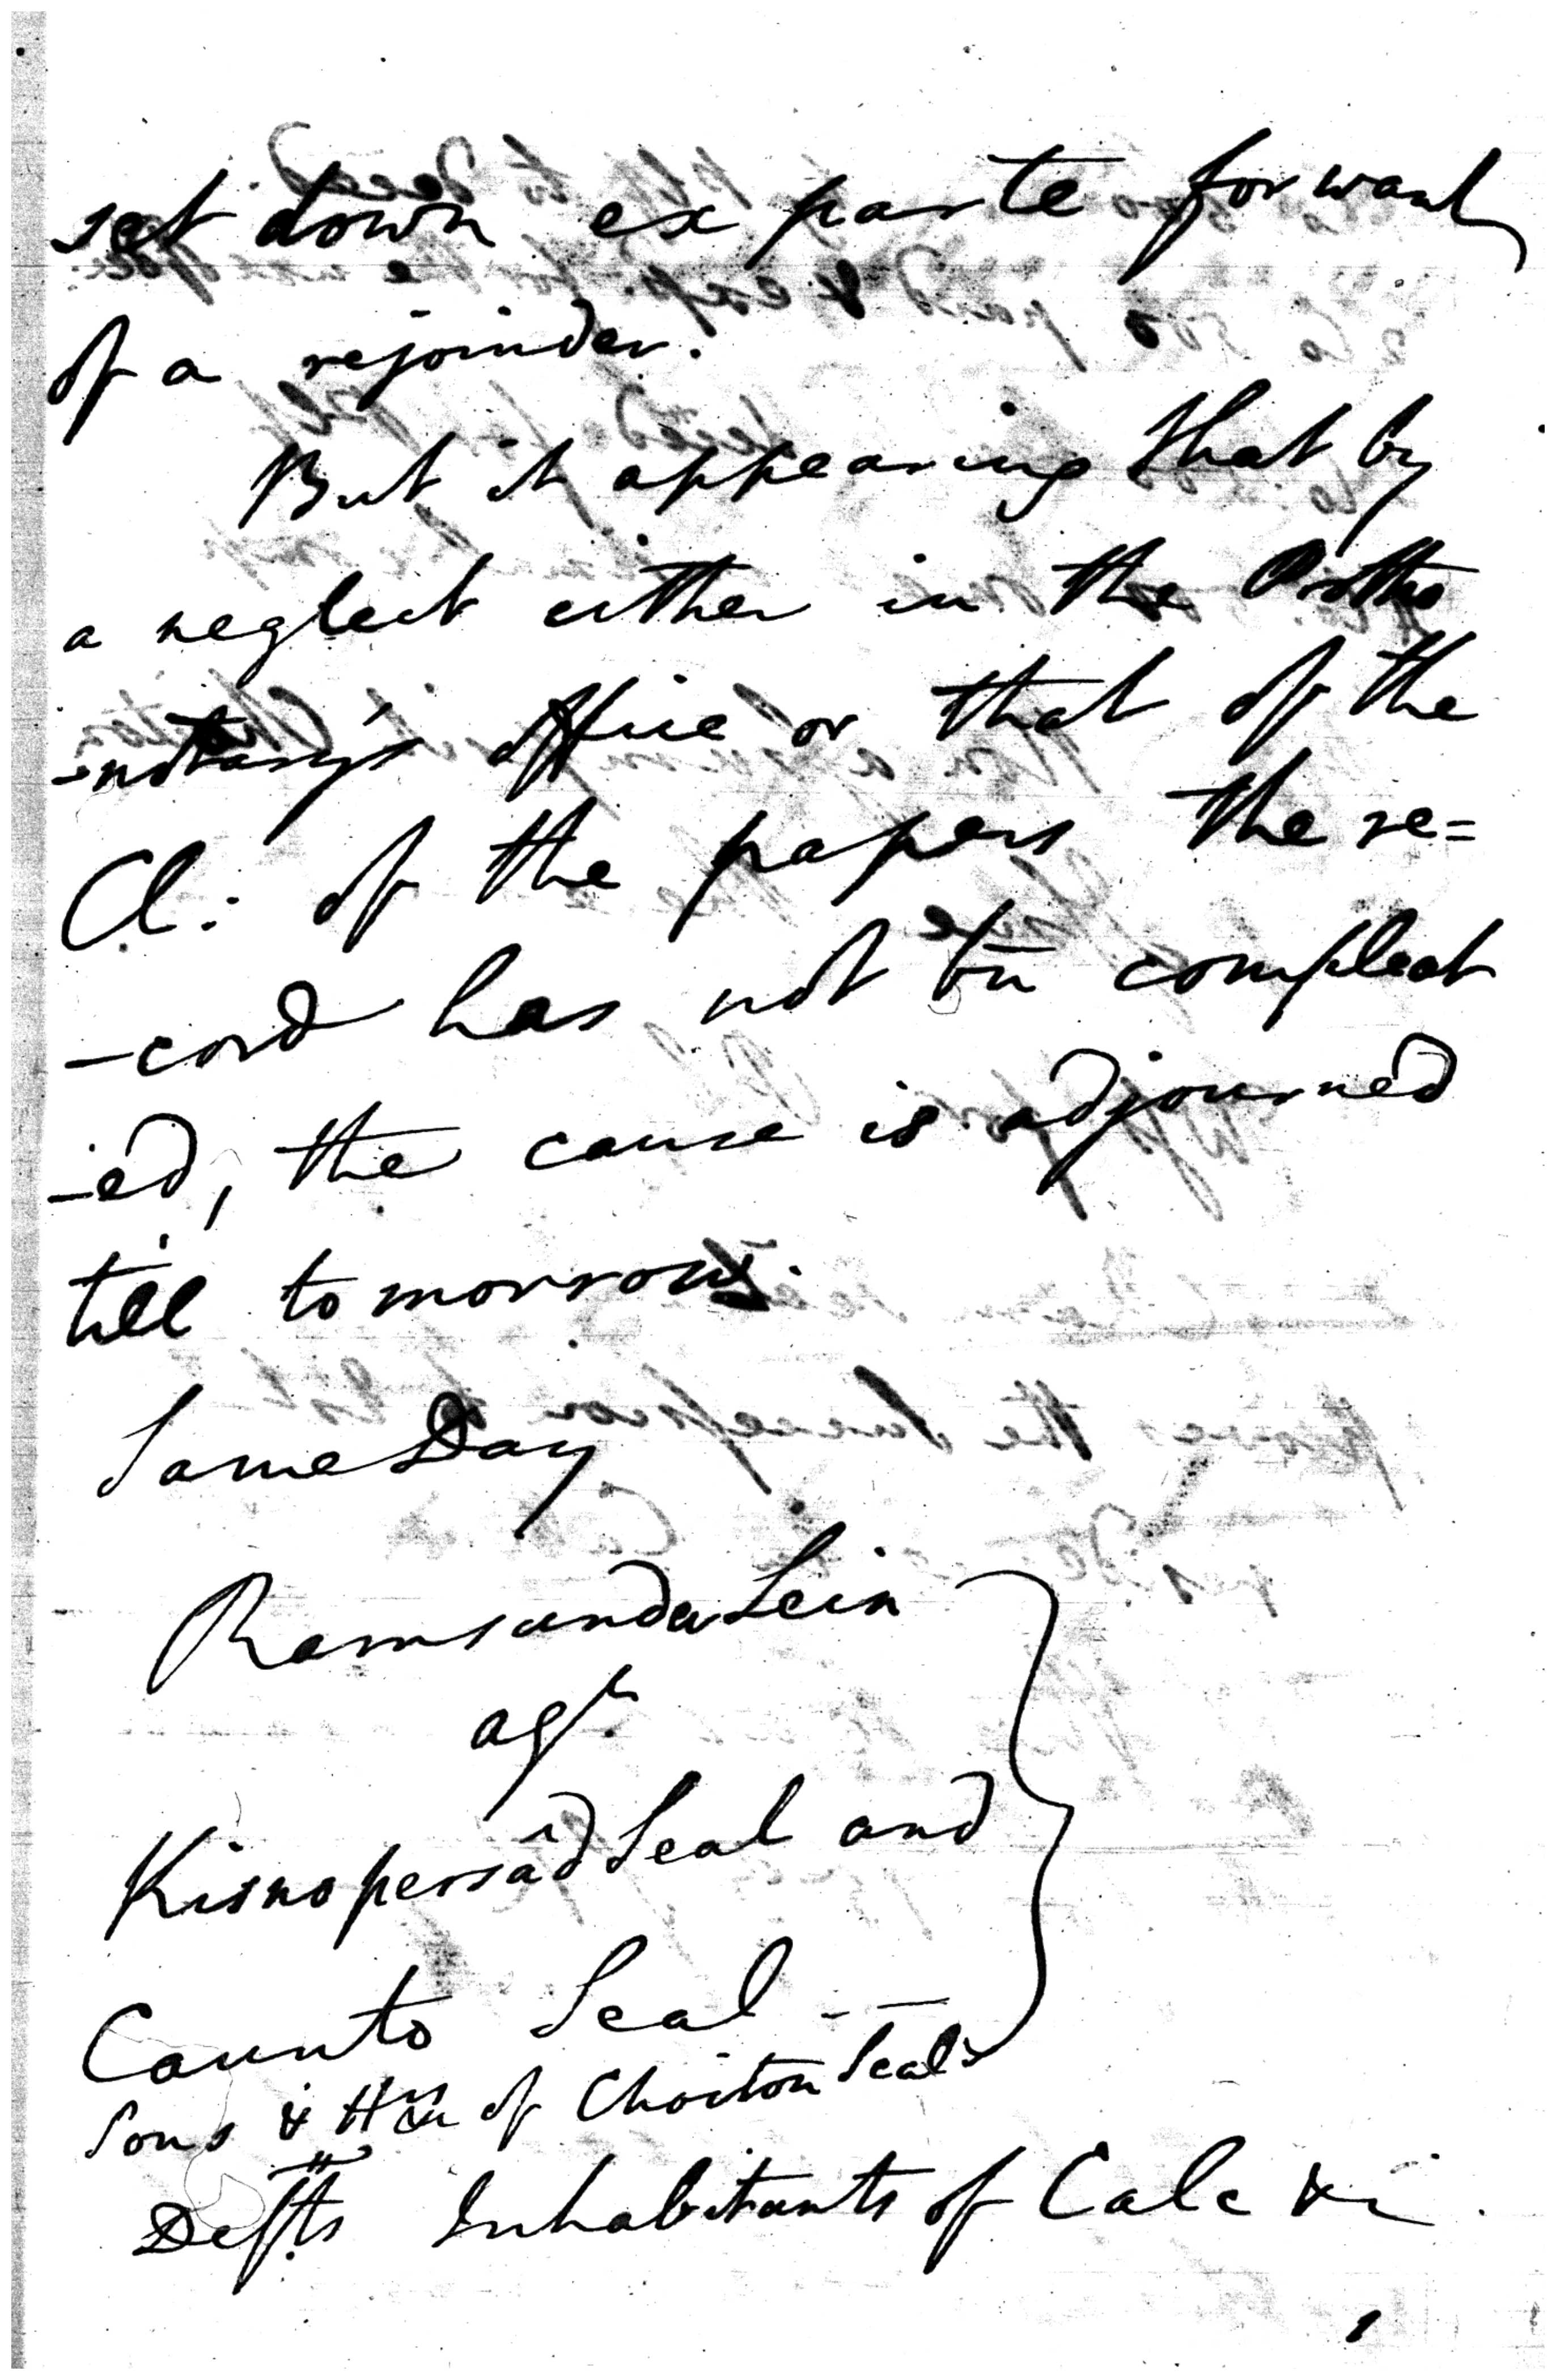 set down ex parte for want
of a rejoinder.
But it appearing that by
a neglect either in the Protho
-notary's office or that of the
Cl: of the papers the re=
-cord has not bn compleat
-ed, the cause is adjourned
till tomorrow.
Same Day
Ramsunder Sein
agt.
Kisnopersad Seal and
Caunto Seal --
Sons & of Choiton Seal
Defts Inhabitants of Calc &c